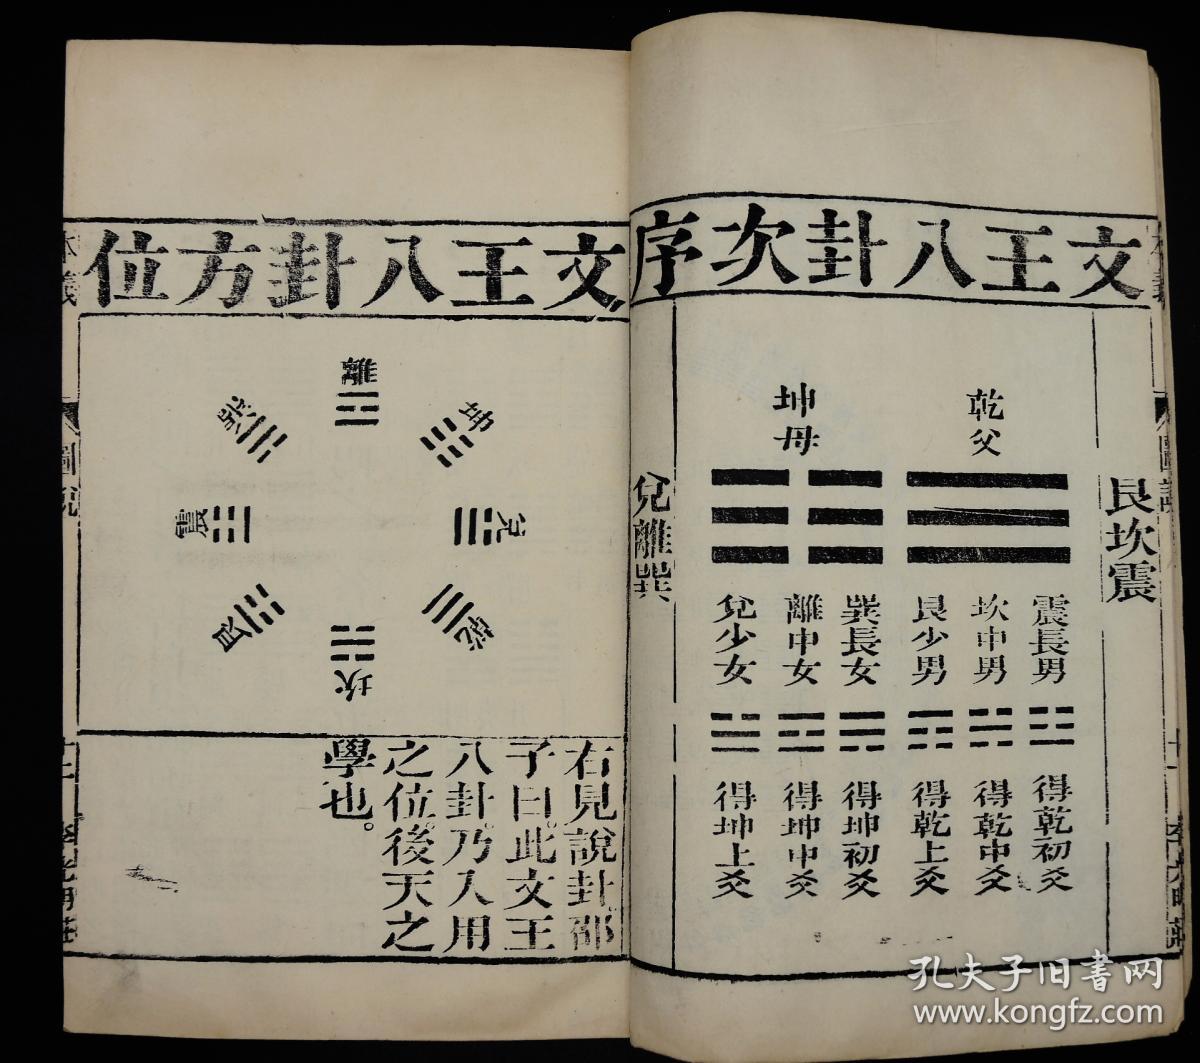 文王八卦次序
艮坎震
乾父
坤母
震長男
坎中男
艮少男
巽長女
離中女
兌少女
得乾初爻
得乾中爻
得乾上爻
得坤初爻
得坤中爻
得坤上爻
兌離巽
文王八卦方位
離
坤
兌
乾
坎
艮
震
巽
右見說卦。邵
子曰。此文王
八卦。乃入用
之位。後天之
學也。
本義
圖說
十二
李光明莊
孔夫子旧书网
www.kongfz.com